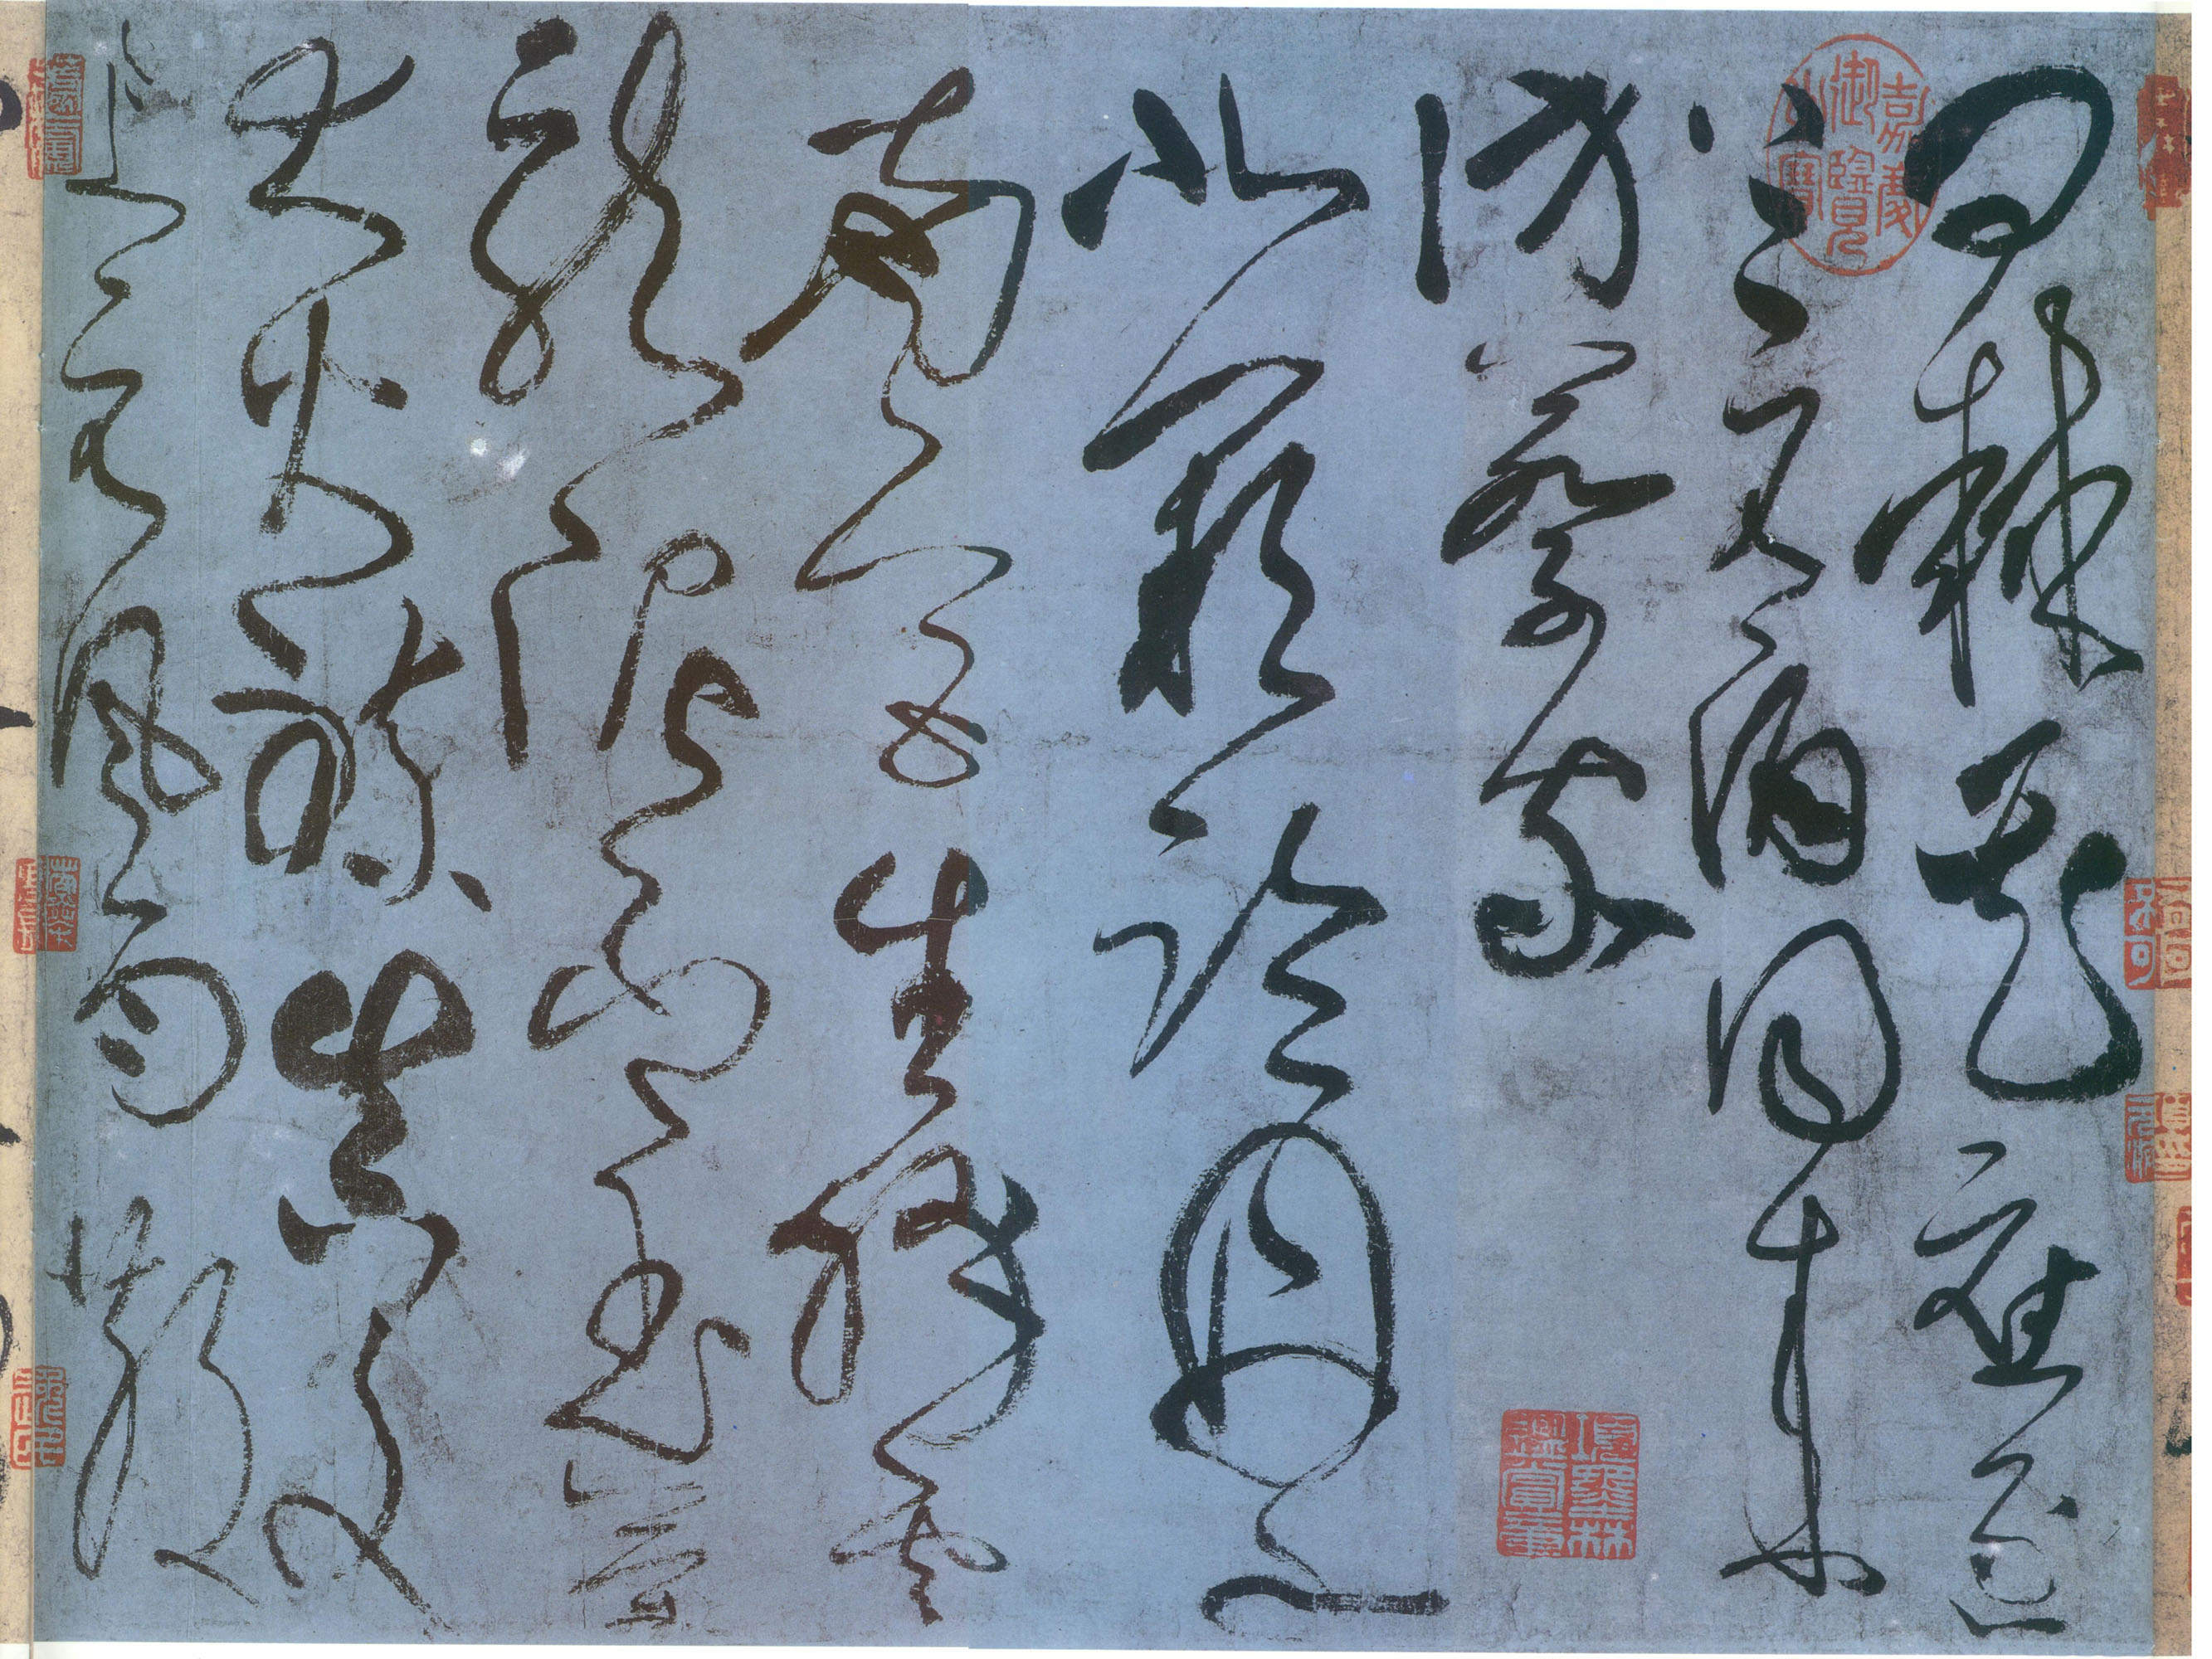 問棘花應逐
上元酒同來
訪蔡家
北闕臨丹水
南宮生絳雲
龍泥印玉簡
大火煉真文
上元風雨散
嘉慶御覽之寶
項墨林鑑賞章